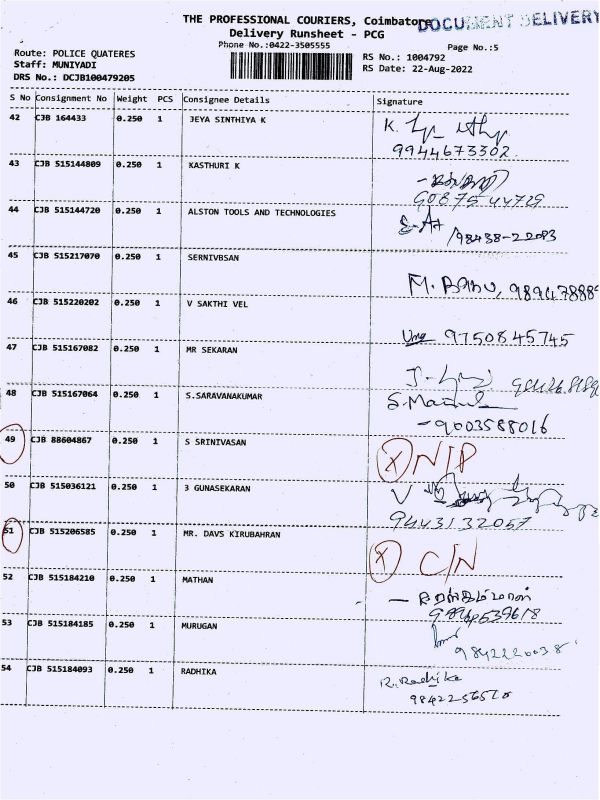 THE PROFESSIONAL COURIERS, Coimbatore
DOCUMENT DELIVERY
Delivery Runsheet - PCG
Phone No.:0422-3505555
Page No.:5
Route: POLICE QUATERES
RS No.: 1004792
Staff: MUNIYADI
RS Date: 22-Aug-2022
DRS No.: DCJB100479205
S No Consignment No Weight PCS Consignee Details Signature
42 CJB 164433 0.250 1 JEYA SINTHIYA K K.
9944673302
43 CJB 515144809 0.250 1 KASTHURI K
9087544729
44 CJB 515144720 0.250 1 ALSTON TOOLS AND TECHNOLOGIES
/98438-22083
45 CJB 515217070 0.250 1 SERNIVBSAN
M. BABU, 98947888
46 CJB 515220202 0.250 1 V SAKTHI VEL
9750845745
47 CJB 515167082 0.250 1 MR SEKARAN
48 CJB 515167064 0.250 1 S.SARAVANAKUMAR
-9003588016
49 CJB 88604867 0.250 1 S SRINIVASAN X N/P
50 CJB 515036121 0.250 1 3 GUNASEKARAN
9443132057
51 CJB 515206585 0.250 1 MR. DAVS KIRUBAHRAN X C/N
52 CJB 515184210 0.250 1 MATHAN
53 CJB 515184185 0.250 1 MURUGAN
9842220038
54 CJB 515184093 0.250 1 RADHIKA R. Radhika